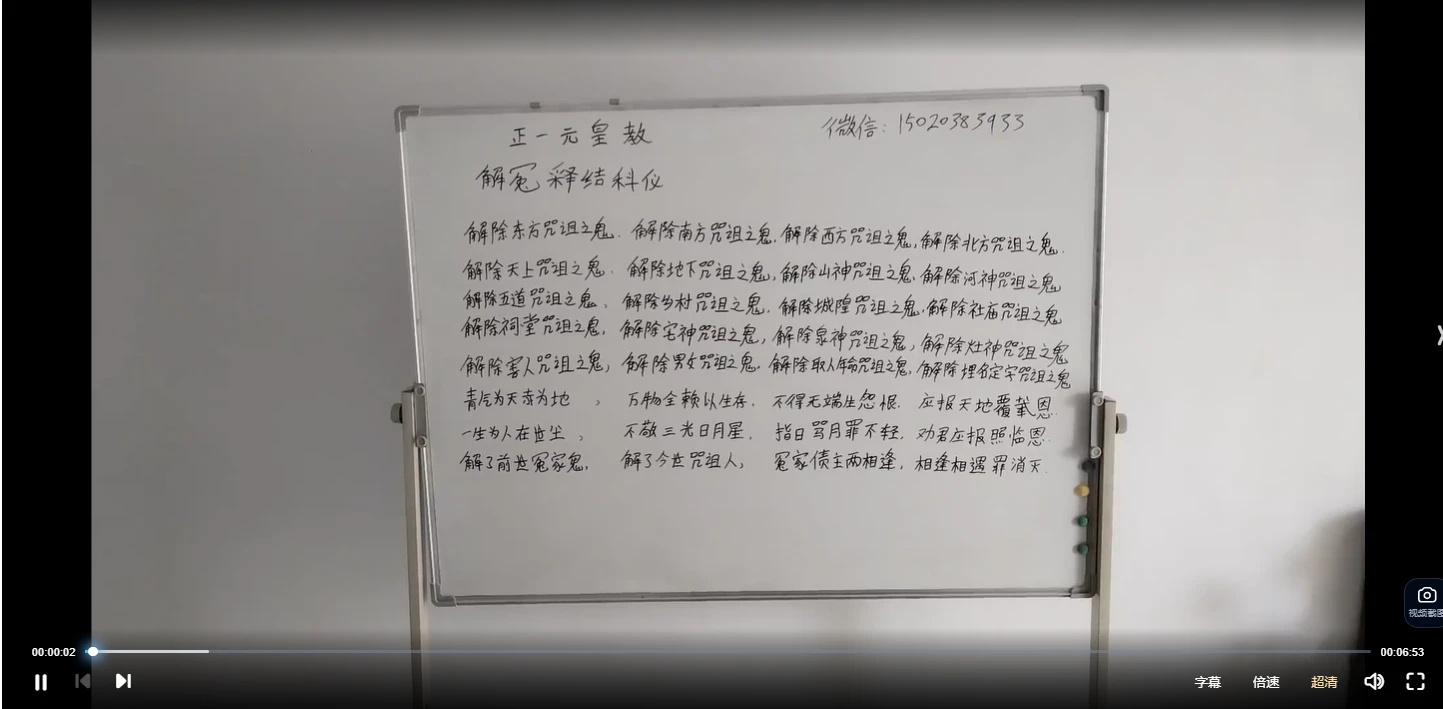 正一元皇教 微信: 15020383933
解冤释结科仪
解除东方咒诅之鬼. 解除南方咒诅之鬼. 解除西方咒诅之鬼, 解除北方咒诅之鬼.
解除天上咒诅之鬼. 解除地下咒诅之鬼, 解除山神咒诅之鬼. 解除河神咒诅之鬼
解除五道咒诅之鬼、 解除乡村咒诅之鬼. 解除城隍咒诅之鬼. 解除社庙咒诅之鬼
解除祠堂咒诅之鬼, 解除宅神咒诅之鬼, 解除泉神咒诅之鬼, 解除灶神咒诅之鬼
解除害人咒诅之鬼, 解除男女咒诅之鬼. 解除取人年命咒诅之鬼. 解除埋名定字咒诅之鬼
青气为天 为地 , 万物全赖以生存. 不得无端生怨恨. 应报天地覆载恩.
一生为人在世尘 , 不敬三光日月星. 指日骂月罪不轻. 劝君应报照临恩.
解了前世冤家鬼, 解了今世咒诅人, 冤家债主两相逢, 相逢相遇罪消灭.
视频截图
00:00:02 00:06:53
字幕 倍速 超清